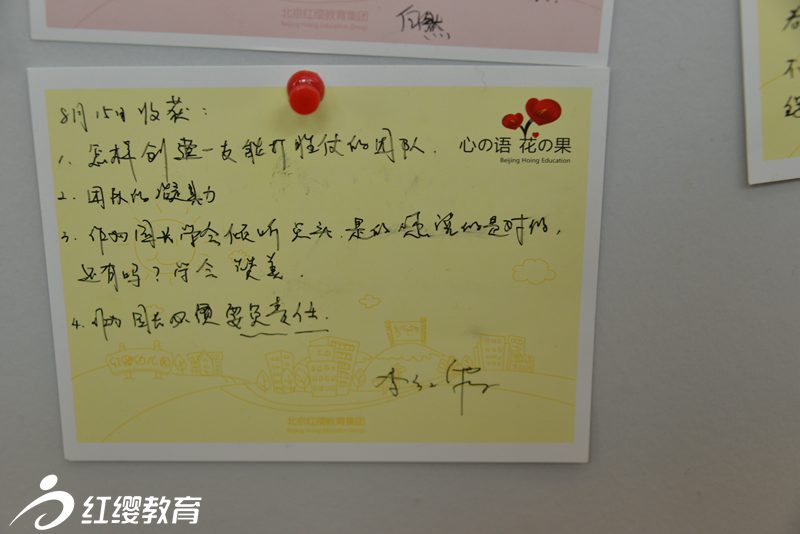 北京红缨教育集团
Beijing Hoing Education Group
自然
8月15日收获：
心の语 花の果
Beijing Hoing Education
1. 怎样创建一支能打胜仗的团队.
2. 团队的凝聚力
3. 作为园长学会倾听 点头 是的 您说的是对的,
还有吗？学会 赞美.
4. 作为园长必须要负责任.
红缨幼儿园
李红
北京红缨教育集团
Beijing Hoing Education Group
红缨教育